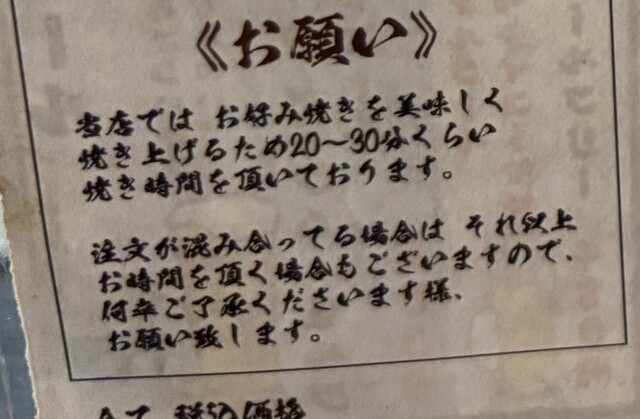 《お願い》
当店では お好み焼きを美味しく
焼き上げるため20〜30分くらい
焼き時間を頂いております。
注文が混み合ってる場合は それ以上
お時間を頂く場合もございますので、
何卒ご了承くださいます様、
お願い致します。
全て 税込価格